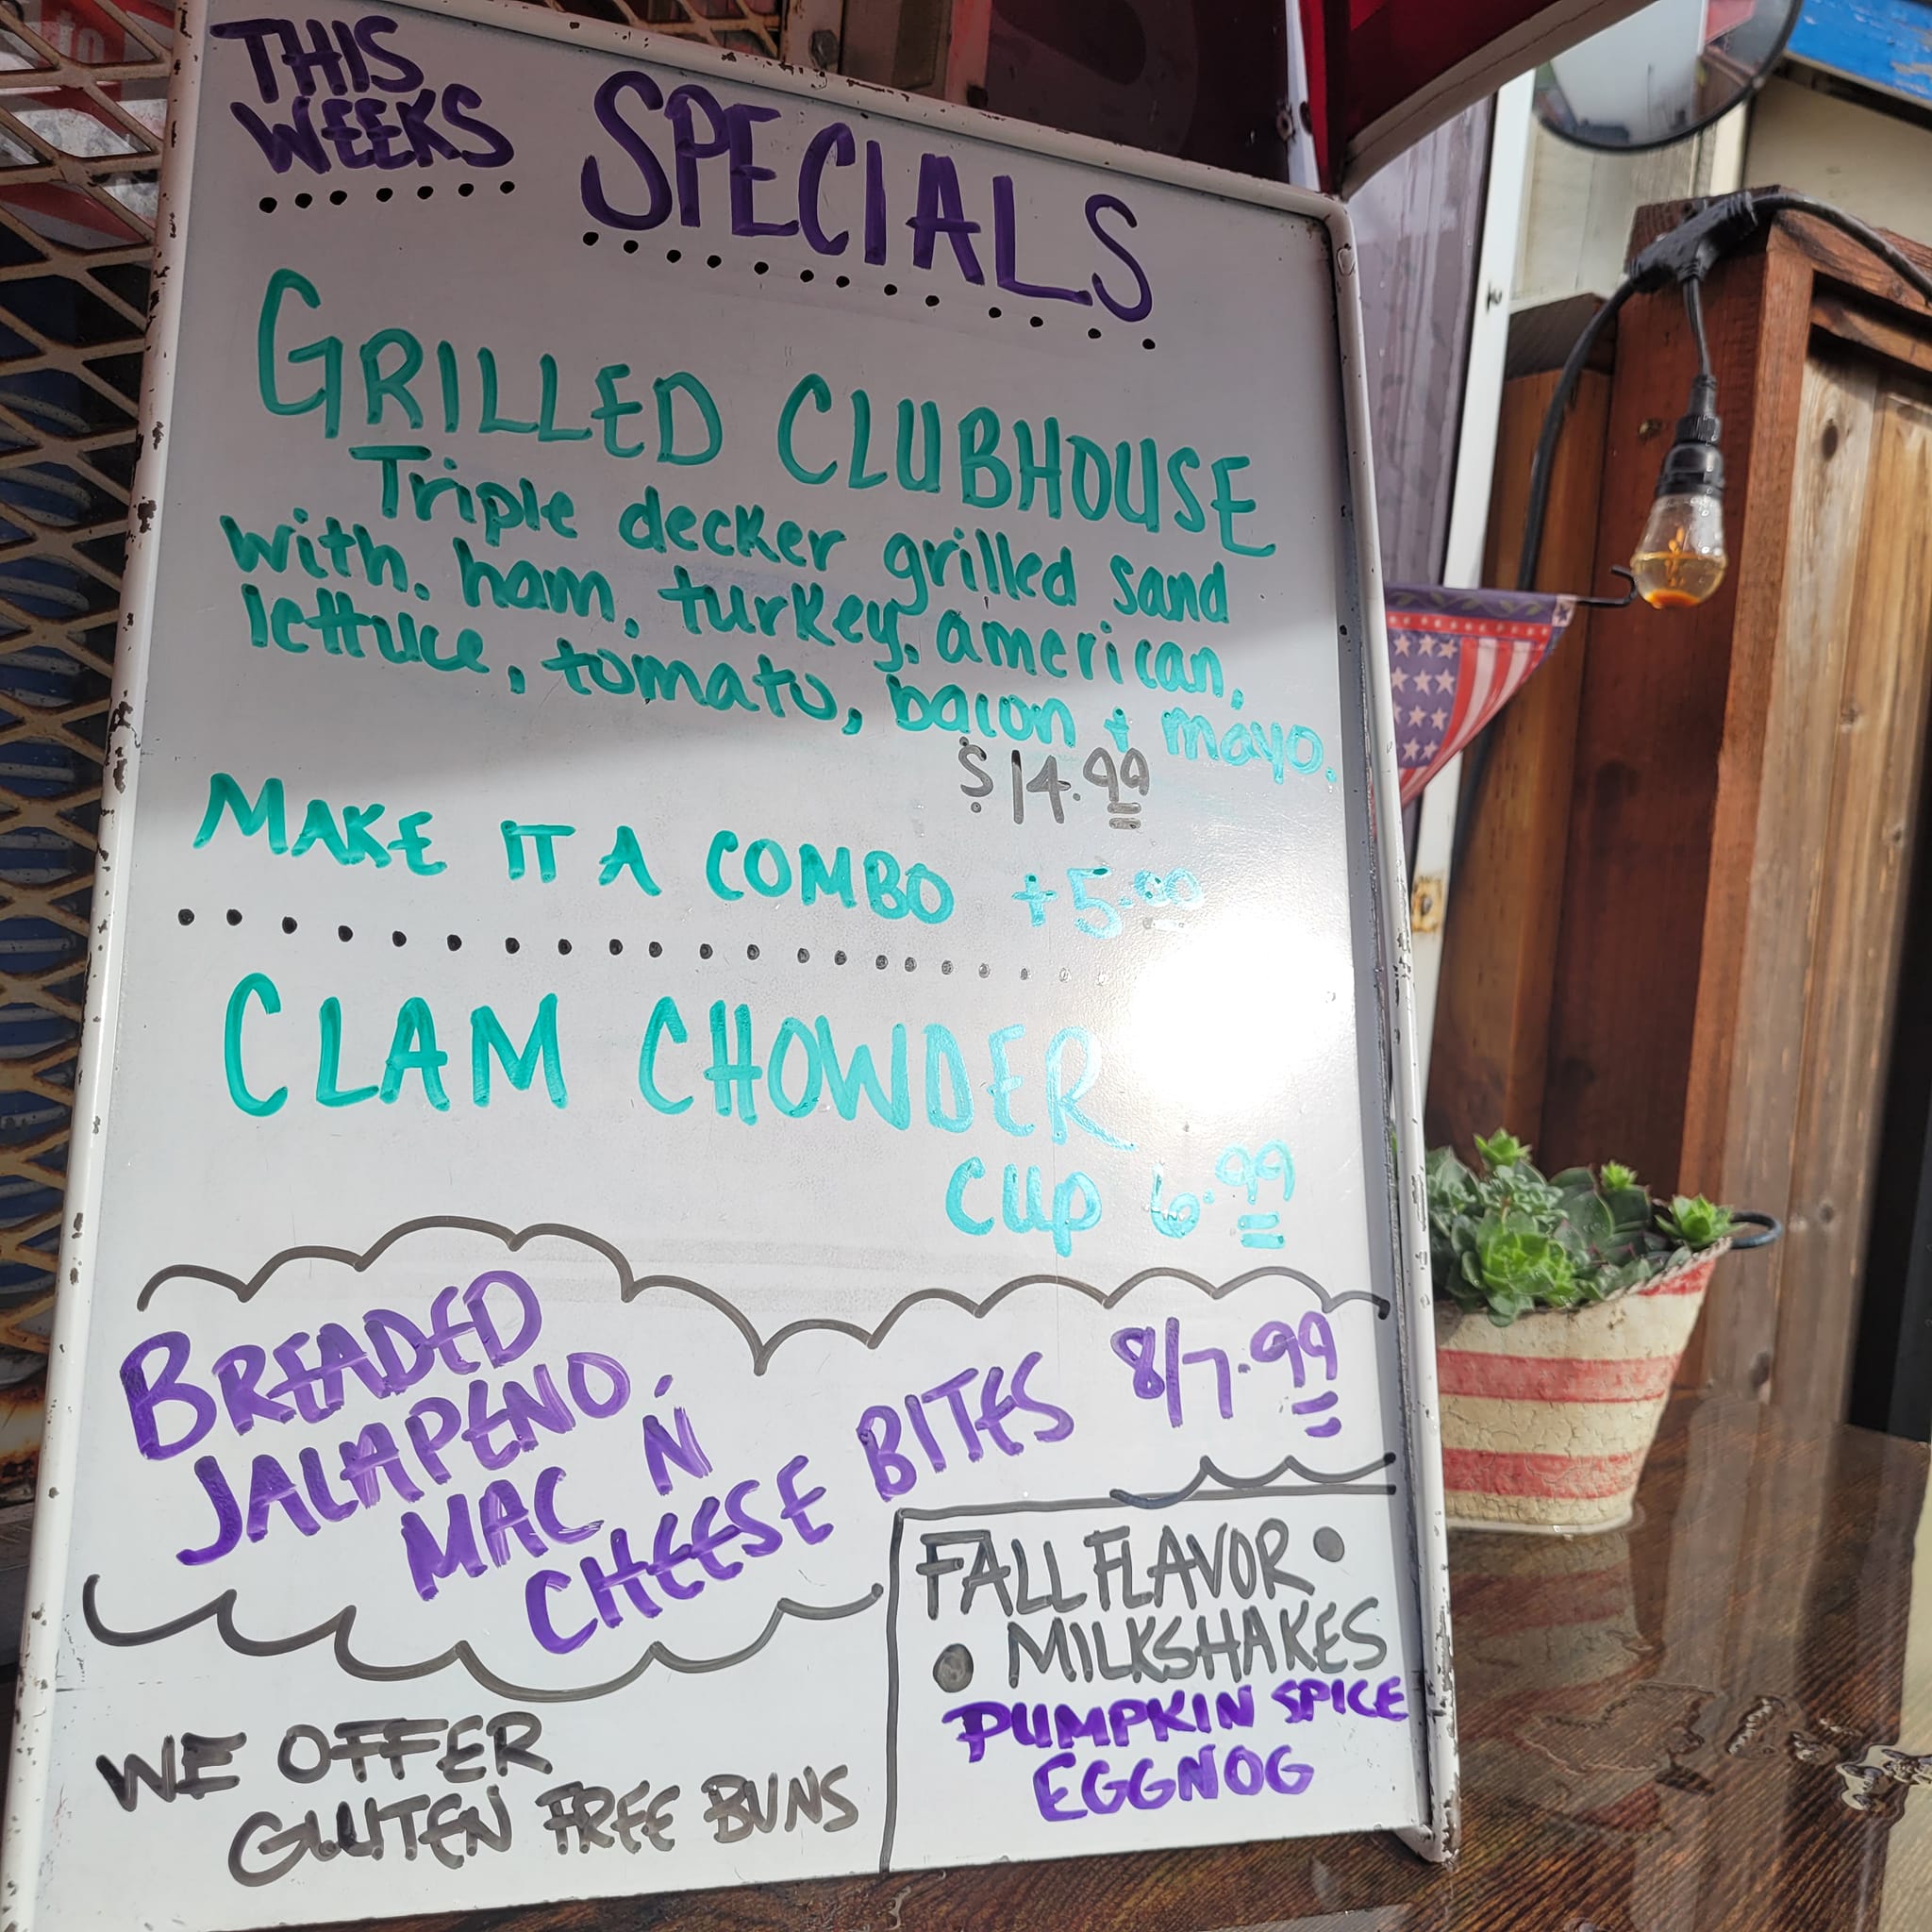 THIS
WEEKS
SPECIALS
GRILLED CLUBHOUSE
Triple decker grilled sand
with. ham, turkey, american,
lettuce, tomato, bacon + mayo.
$14.99
MAKE IT A COMBO +5.00
CLAM CHOWDER
CUP 6.99
BREADED
JALAPENO
MAC N
CHEESE BITES 8/7.99
WE OFFER
GLUTEN FREE BUNS
FALL FLAVOR
MILKSHAKES
PUMPKIN SPICE
EGGNOG